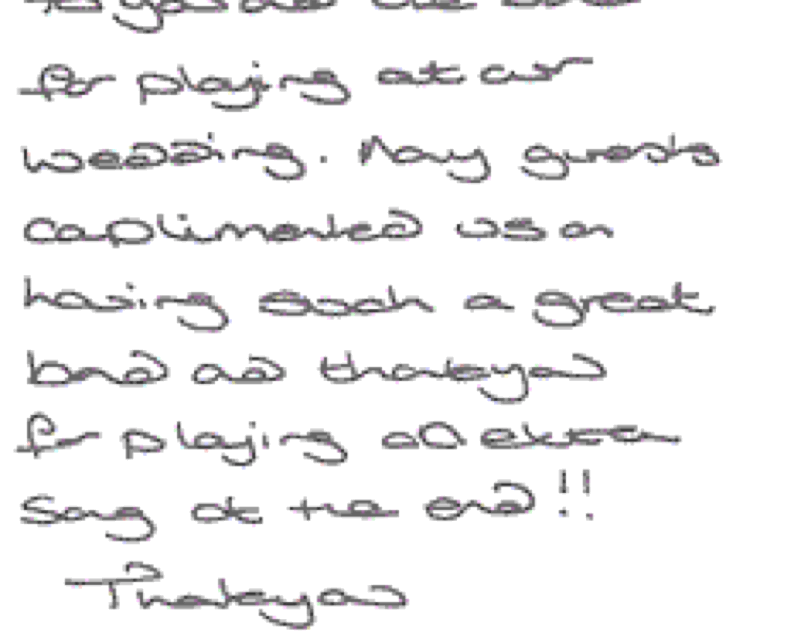 to you and the band
for playing at our
wedding. Many guests
caplimented us on
having such a great
band and thankyou
for playing an extra
song at the end!!
Thankyou